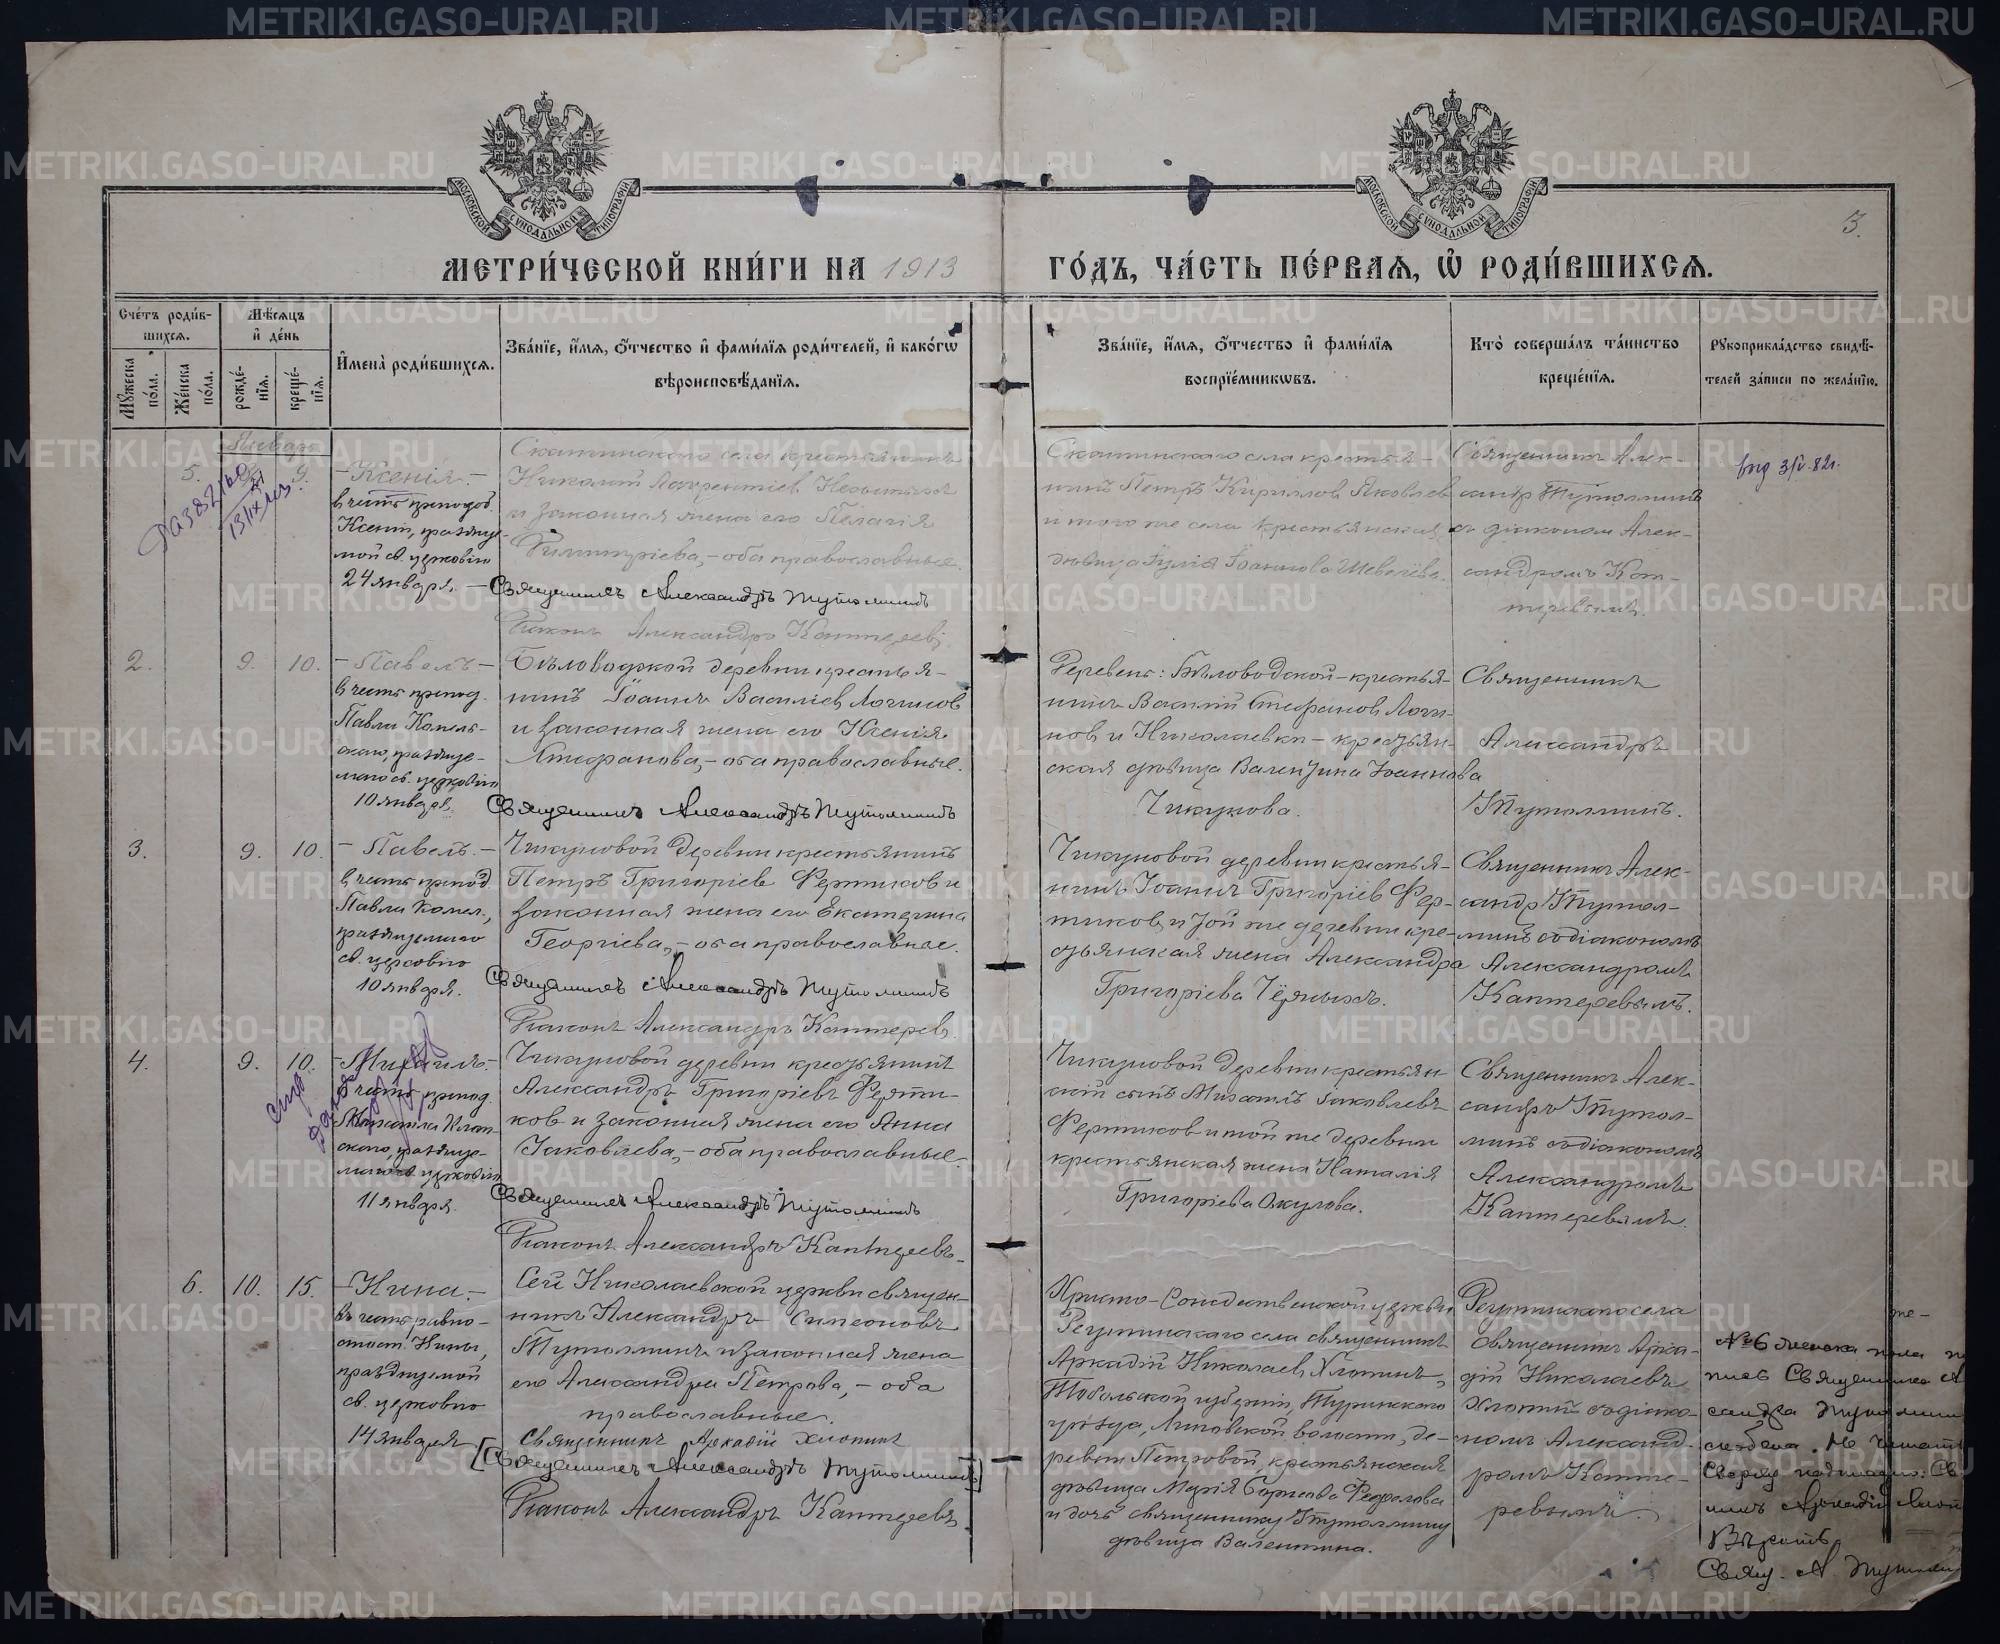 МЕТРИ́ЧЕСКОЙ КНИ́ГИ НА 1913 ГО́ДЪ, ЧА́СТЬ ПЕ́РВАЯ, Ѡ҆ РОДИ́ВШИХСЯ.
3.
МОСКОВСКОЙ СѴНОДАЛЬНОЙ ТИПОГРАФІИ
МОСКОВСКОЙ СѴНОДАЛЬНОЙ ТИПОГРАФІИ
Сче́тъ роди́в-
шихся.
Му́жеска по́ла.
Же́нска по́ла.
Мѣ́сяцъ
и҆ де́нь
рожде́нїя.
креще́нїя.
И҆мена̀ роди́вшихся.
Зва́нїе, и҆́мя, ѻ҆́тчество и҆ фами́лїя роди́телей, и҆ како́гѡ
вѣроисповѣ́данїя.
Зва́нїе, и҆́мя, ѻ҆́тчество и҆ фами́лїя
воспрїе́мникѡвъ.
Кто̀ соверша́лъ та́инство
креще́нїя.
Рꙋкоприкла́дство свидѣ́-
телей за́писи по жела́нїю.
Январь
5. 9.
- Ксенія. -
въ честь преподоб.
Ксеніи, празднуе-
мой св. церковію
24 января. -
Скатинскаго села крестьянинъ
Николай Лаврентіев
и законная жена его Пелагія
Димитріева, - оба православные.
Священникъ Александръ Тутолминъ
Діаконъ Александръ Каптеревъ
Скатинскаго села кресть-
нинъ Петръ Кириллов Яковлев
и того же села крестьянская
дѣвица Іулія Іоаннова Шевелева.
Священникъ Алек-
сандръ Тутолминъ
съ діаконом Алек-
сандромъ Кап-
теревымъ.
2. 9. 10.
- Павелъ -
въ честь препод.
Павла Комель-
скаго, праздуе-
маго св. церковію
10 января.
Бѣловодской деревни крестья-
нинъ Іоаннъ Василіев Логинов
и законная жена его Ксенія
Стефанова, - оба православные.
Священникъ Александръ Тутолминъ
Деревень: Бѣловодской - крестья-
нинъ Василій Стефанов Логи-
нов и Николаевки - крестьян-
ская дѣвица Валентина Іоаннова
Чикунова.
Священникъ
Александръ
Тутолминъ.
3. 9. 10.
- Павелъ. -
въ честь препод.
Павла Комел.,
празднуемаго
св. церковію
10 января.
Чикуновой деревни крестьянинъ
Петръ Григоріев Фертиков и
законная жена его Екатерина
Георгіева, - оба православные.
Священникъ Александръ Тутолминъ
Діаконъ Александръ Каптерев.
Чикуновой деревни крестья-
нинъ Іоаннъ Григоріев Фер-
тиков и той же деревни кре-
стьянская жена Александра
Григоріева Черныхъ.
Священникъ Алек-
сандръ Тутол-
минъ со діакономъ
Александромъ
Каптеревымъ.
4. 9. 10.
- Михаилъ. -
въ честь препод.
Михаила Клоп-
скаго, празднуе-
маго св. церковію
11 января.
Чикуновой деревни крестьянинъ
Александръ Григоріевъ Ферти-
ков и законная жена его Анна
Іаковлева, - оба православные.
Священникъ Александръ Тутолминъ
Діаконъ Александръ Каптеревъ.
Чикуновой деревни крестьян-
скій сынъ Михаилъ Іаковлевъ
Фертиков и той же деревни
крестьянская жена Наталія
Григоріева Окулова.
Священникъ Алек-
сандръ Тутол-
минъ со діакономъ
Александромъ
Каптеревымъ.
6. 10. 15.
- Нина. -
въ честь равно-
апост. Нины,
празднуемой
св. церковію
14 января
Сей Николаевской церкви священ-
никъ Александръ Симеоновъ
Тутолминъ и законная жена
его Александра Петрова, - оба
православные.
Священникъ Аркадій Хлопинъ
[Священникъ Александръ Тутолминъ]
Діаконъ Александръ Каптеревъ.
Христо-Рождественской церкви
села священникъ
Аркадій Николаев Хлопинъ,
Тобольской губерніи, Туринскаго
уѣзда, Липовской волости, де-
ревни Петровой, крестьянская
дѣвица Марія
и дочь священнику Тутолмину
дѣвица Валентина.
села
священникъ Арка-
дій Николаевъ
Хлопинъ со діако-
номъ Александ-
ромъ Капте-
ревымъ.
№ 6 женска пола
Священника
сандра Тутолмин
Не читать
Вѣрить
Свящ. А. Тутолмин